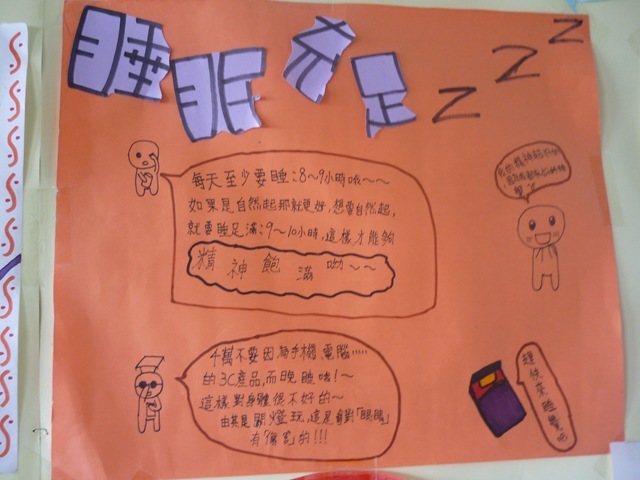 睡眠充足
Z Z Z
每天至少要睡:8～9小時哦～～
如果是自然起那就更好,想要自然起,
就要睡足滿:9～10小時,這樣才能夠
精神飽滿呦～～
我的精神好好
4萬不要因為手機、電腦.....
的3C產品,而晚睡哦!～
這樣對身體很不好的～
由其是關燈玩,這是會對「眼睛」
有「傷害」的!!!
趕快來睡覺吧